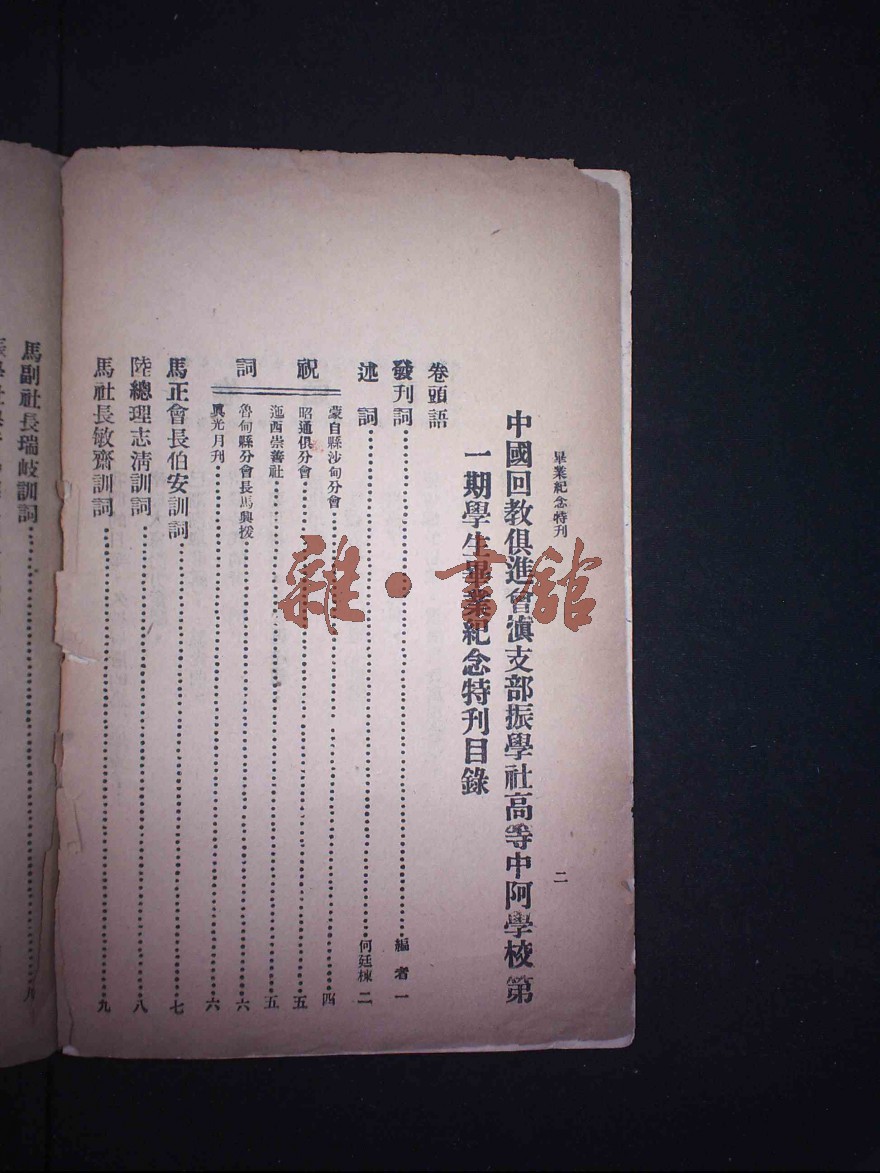 畢業紀念特刊 二
中國回教俱進會滇支部振學社高等中阿學校第
一期學生畢業紀念特刊目錄
卷頭語
發刊詞 編者 一
述詞 何廷棟 二
祝詞
蒙自縣沙甸分會 四
昭通俱分會 五
迤西崇善社 五
魯甸縣分會長馬興援 六
興光月刊 六
馬正會長伯安訓詞 七
陸總理志清訓詞 八
馬社長敏齋訓詞 九
馬副社長瑞岐訓詞 九
雜·書館